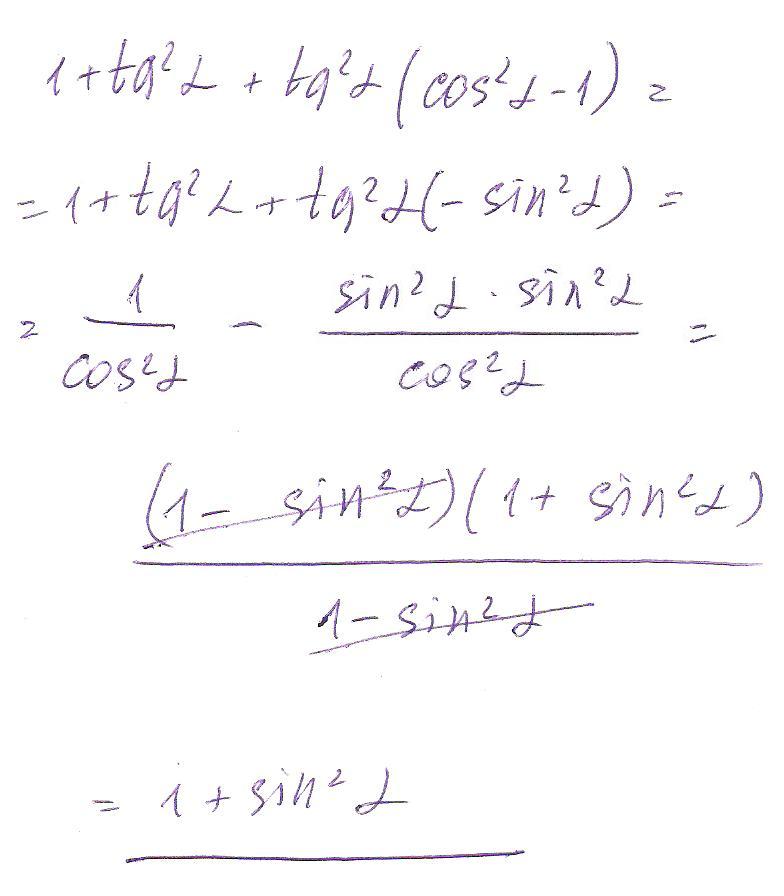 1 + tg²α + tg²α (cos²α - 1) =
= 1 + tg²α + tg²α (- sin²α) =
= 1/cos²α - sin²α · sin²α/cos²α =
(1 - sin²α)(1 + sin²α)
1 - sin²α
= 1 + sin²α